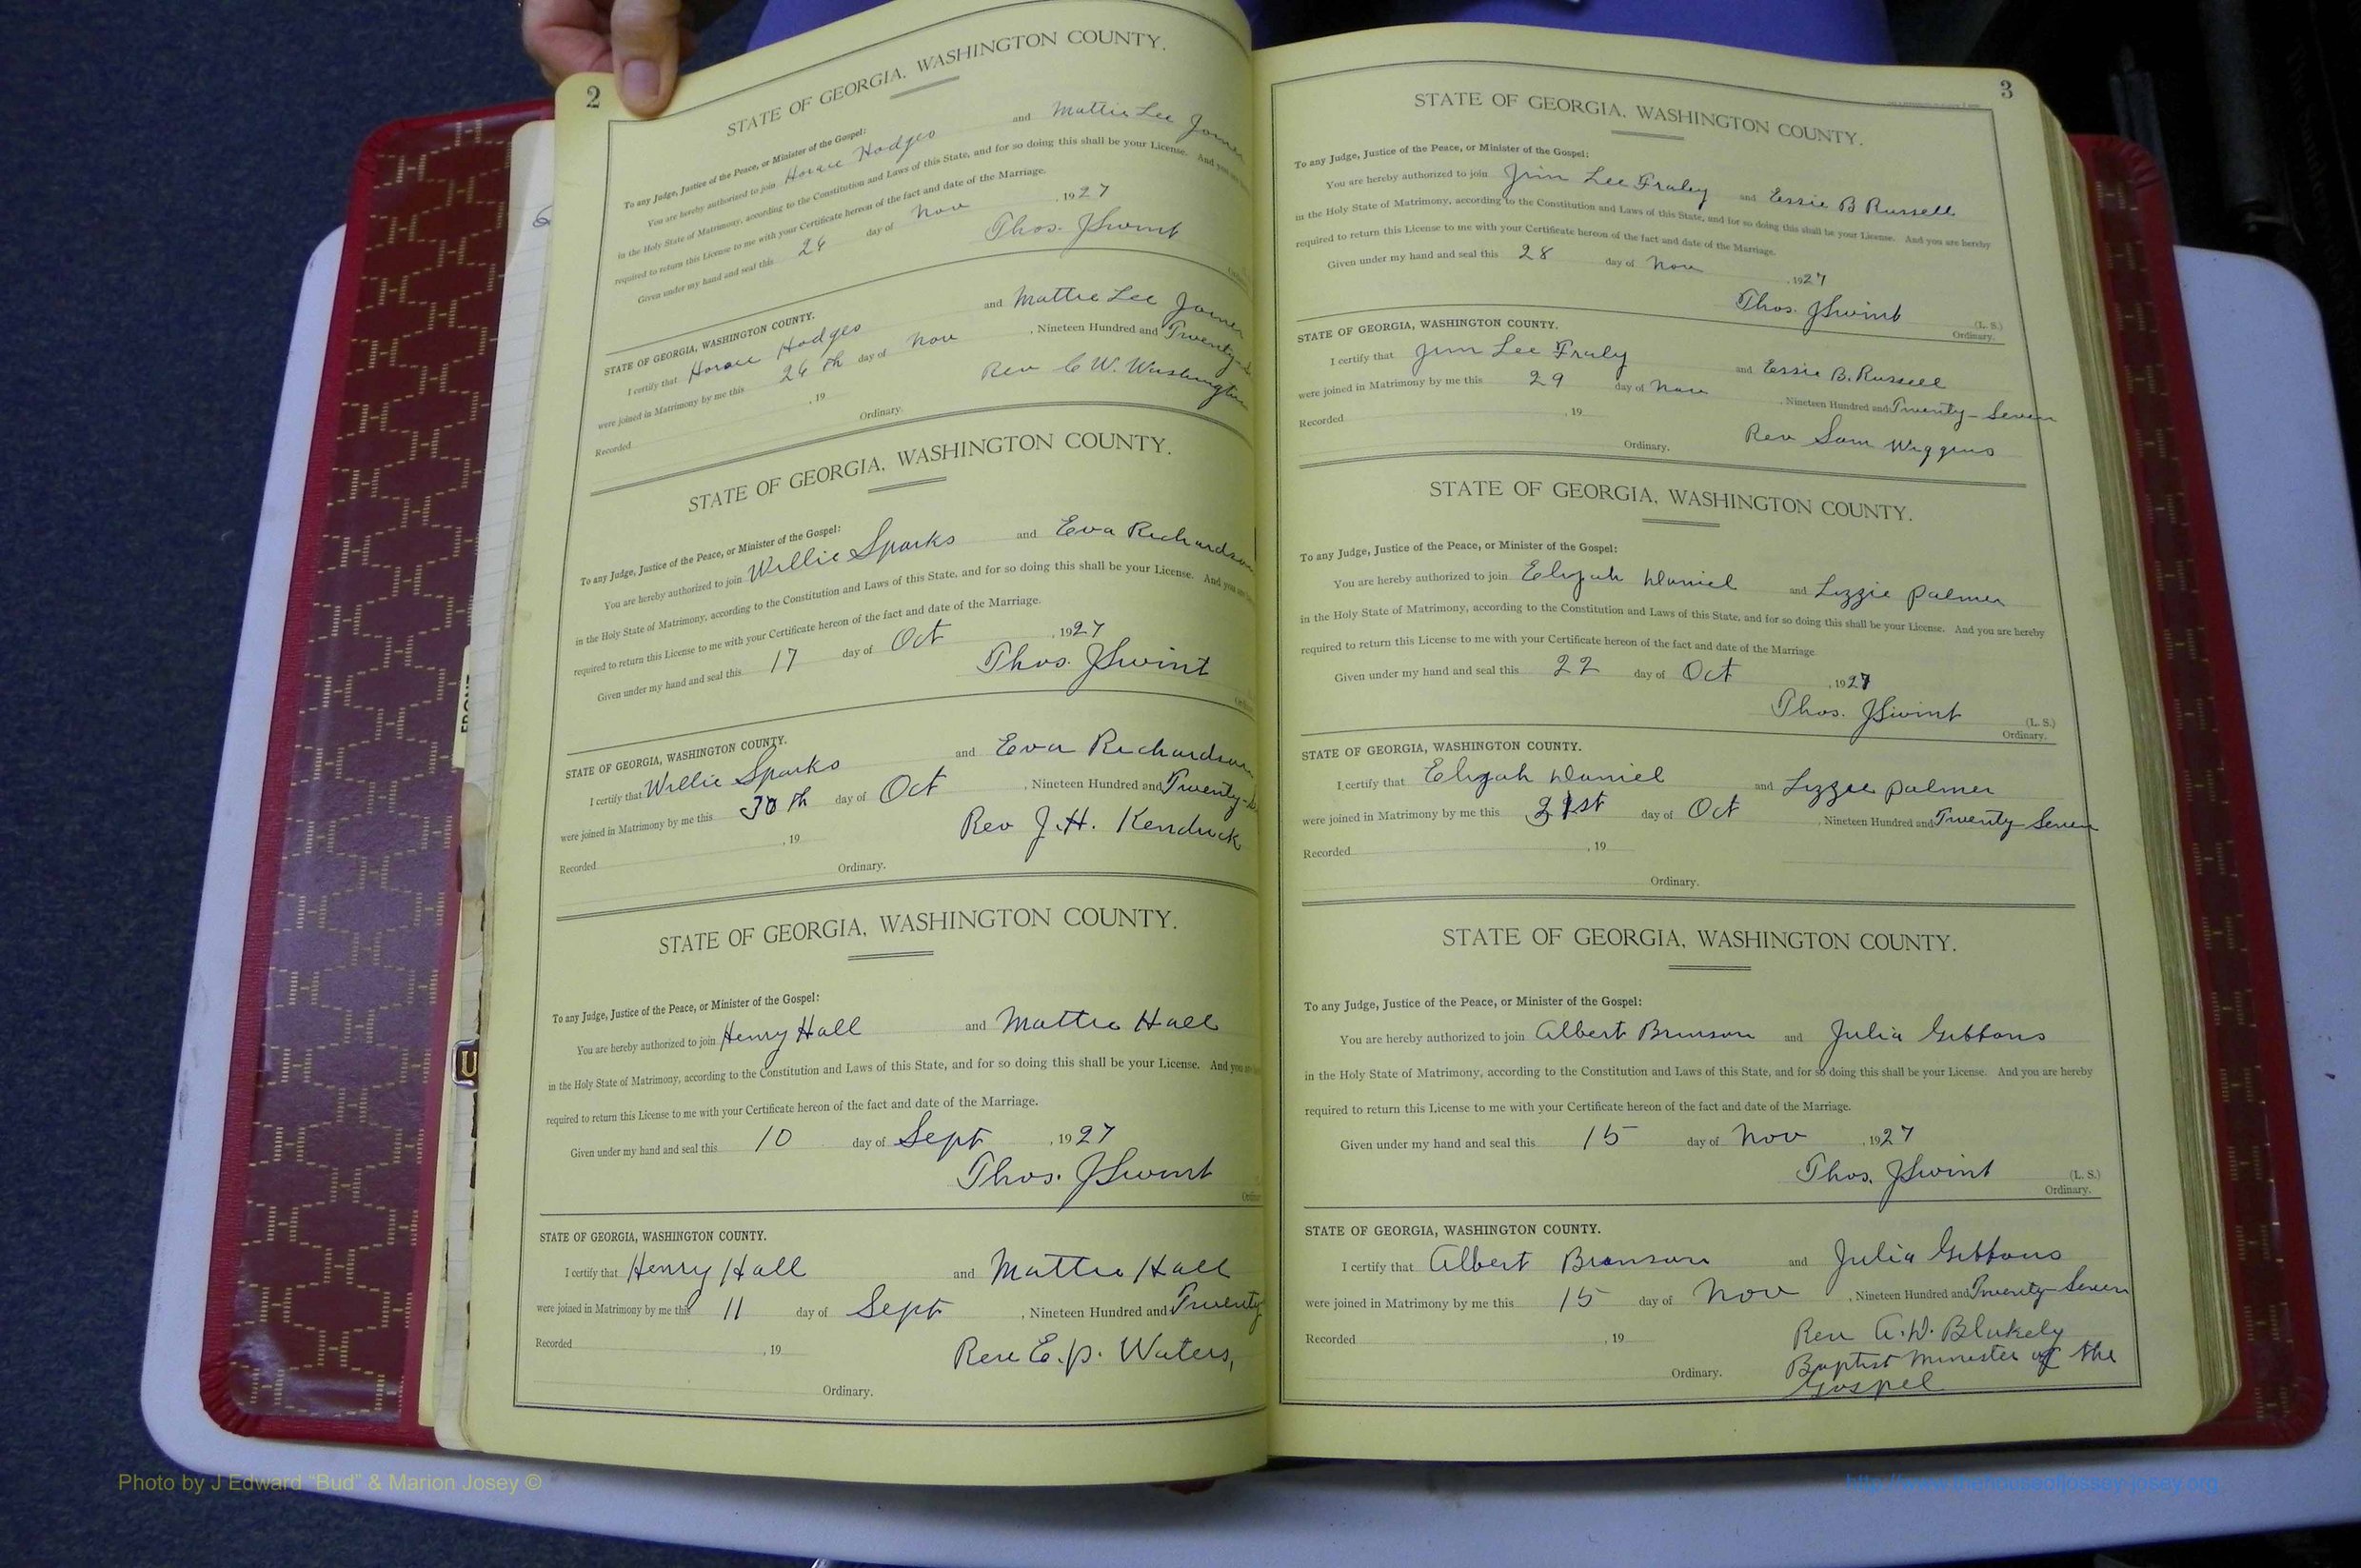 2
STATE OF GEORGIA, WASHINGTON COUNTY.
To any Judge, Justice of the Peace, or Minister of the Gospel:
You are hereby authorized to join Horace Hodges and Mattie Lee Joiner
in the Holy State of Matrimony, according to the Constitution and Laws of this State, and for so doing this shall be your License. And you
required to return this License to me with your Certificate hereon of the fact and date of the Marriage.
Given under my hand and seal this 26 day of Nov , 1927
Thos. J Swint
STATE OF GEORGIA, WASHINGTON COUNTY.
I certify that Horace Hodges and Mattie Lee Joiner
were joined in Matrimony by me this 26 th day of Nov , Nineteen Hundred and Twenty-
Rev C W. Washington
Recorded , 19
Ordinary.
STATE OF GEORGIA, WASHINGTON COUNTY.
To any Judge, Justice of the Peace, or Minister of the Gospel:
You are hereby authorized to join Willie Sparks and Eva Richardson
in the Holy State of Matrimony, according to the Constitution and Laws of this State, and for so doing this shall be your License. And you
required to return this License to me with your Certificate hereon of the fact and date of the Marriage.
Given under my hand and seal this 17 day of Oct , 1927
Thos. J Swint
STATE OF GEORGIA, WASHINGTON COUNTY.
I certify that Willie Sparks and Eva Richardson
were joined in Matrimony by me this 30 th day of Oct , Nineteen Hundred and Twenty-
Rev J. H. Kendrick
Recorded , 19
Ordinary.
STATE OF GEORGIA, WASHINGTON COUNTY.
To any Judge, Justice of the Peace, or Minister of the Gospel:
You are hereby authorized to join Henry Hall and Mattie Hall
in the Holy State of Matrimony, according to the Constitution and Laws of this State, and for so doing this shall be your License. And you
required to return this License to me with your Certificate hereon of the fact and date of the Marriage.
Given under my hand and seal this 10 day of Sept , 1927
Thos. J Swint
STATE OF GEORGIA, WASHINGTON COUNTY.
I certify that Henry Hall and Mattie Hall
were joined in Matrimony by me this 11 day of Sept , Nineteen Hundred and Twenty
Recorded , 19 Rev E. P. Waters,
Ordinary.
3
STATE OF GEORGIA, WASHINGTON COUNTY.
To any Judge, Justice of the Peace, or Minister of the Gospel:
You are hereby authorized to join Jim Lee Fraley and Essie B Russell
in the Holy State of Matrimony, according to the Constitution and Laws of this State, and for so doing this shall be your License. And you are hereby
required to return this License to me with your Certificate hereon of the fact and date of the Marriage.
Given under my hand and seal this 28 day of Nov , 1927
Thos. J Swint (L. S.)
Ordinary.
STATE OF GEORGIA, WASHINGTON COUNTY.
I certify that Jim Lee Fraly and Essie B. Russell
were joined in Matrimony by me this 29 day of Nov , Nineteen Hundred and Twenty-Seven
Recorded , 19
Ordinary. Rev Sam Wiggins
STATE OF GEORGIA, WASHINGTON COUNTY.
To any Judge, Justice of the Peace, or Minister of the Gospel:
You are hereby authorized to join Elijah Daniel and Lizzie Palmer
in the Holy State of Matrimony, according to the Constitution and Laws of this State, and for so doing this shall be your License. And you are hereby
required to return this License to me with your Certificate hereon of the fact and date of the Marriage.
Given under my hand and seal this 22 day of Oct , 1927
Thos. J Swint (L. S.)
Ordinary.
STATE OF GEORGIA, WASHINGTON COUNTY.
I certify that Elijah Daniel and Lizzie Palmer
were joined in Matrimony by me this day of Oct , Nineteen Hundred and Twenty Seven
Recorded , 19
Ordinary.
STATE OF GEORGIA, WASHINGTON COUNTY.
To any Judge, Justice of the Peace, or Minister of the Gospel:
You are hereby authorized to join Albert Brunson and Julia Gibbons
in the Holy State of Matrimony, according to the Constitution and Laws of this State, and for so doing this shall be your License. And you are hereby
required to return this License to me with your Certificate hereon of the fact and date of the Marriage.
Given under my hand and seal this 15 day of Nov , 1927
Thos. J Swint (L. S.)
Ordinary.
STATE OF GEORGIA, WASHINGTON COUNTY.
I certify that Albert Brunson and Julia Gibbons
were joined in Matrimony by me this 15 day of Nov , Nineteen Hundred and Twenty-Seven
Recorded , 19 Rev A. D. Blakely
Baptist Minister of the
Ordinary. Gospel
FRONT
U
Photo by J Edward "Bud" & Marion Josey ©
http://www.thehouseofjossey-josey.org